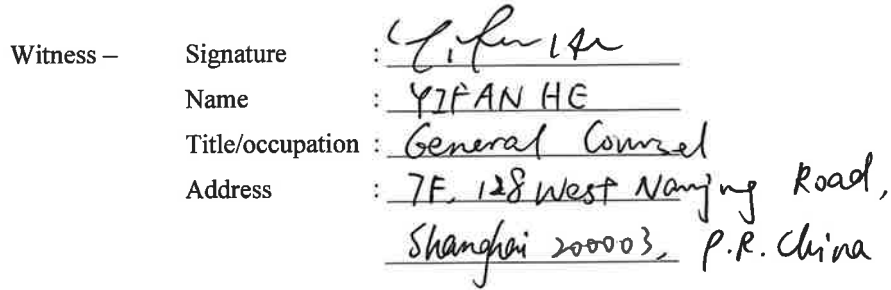 Witness – Signature : Yifan He
Name : YIFAN HE
Title/occupation : General Counsel
Address : 7F, 128 West Nanjing Road,
Shanghai 200003, P.R. China